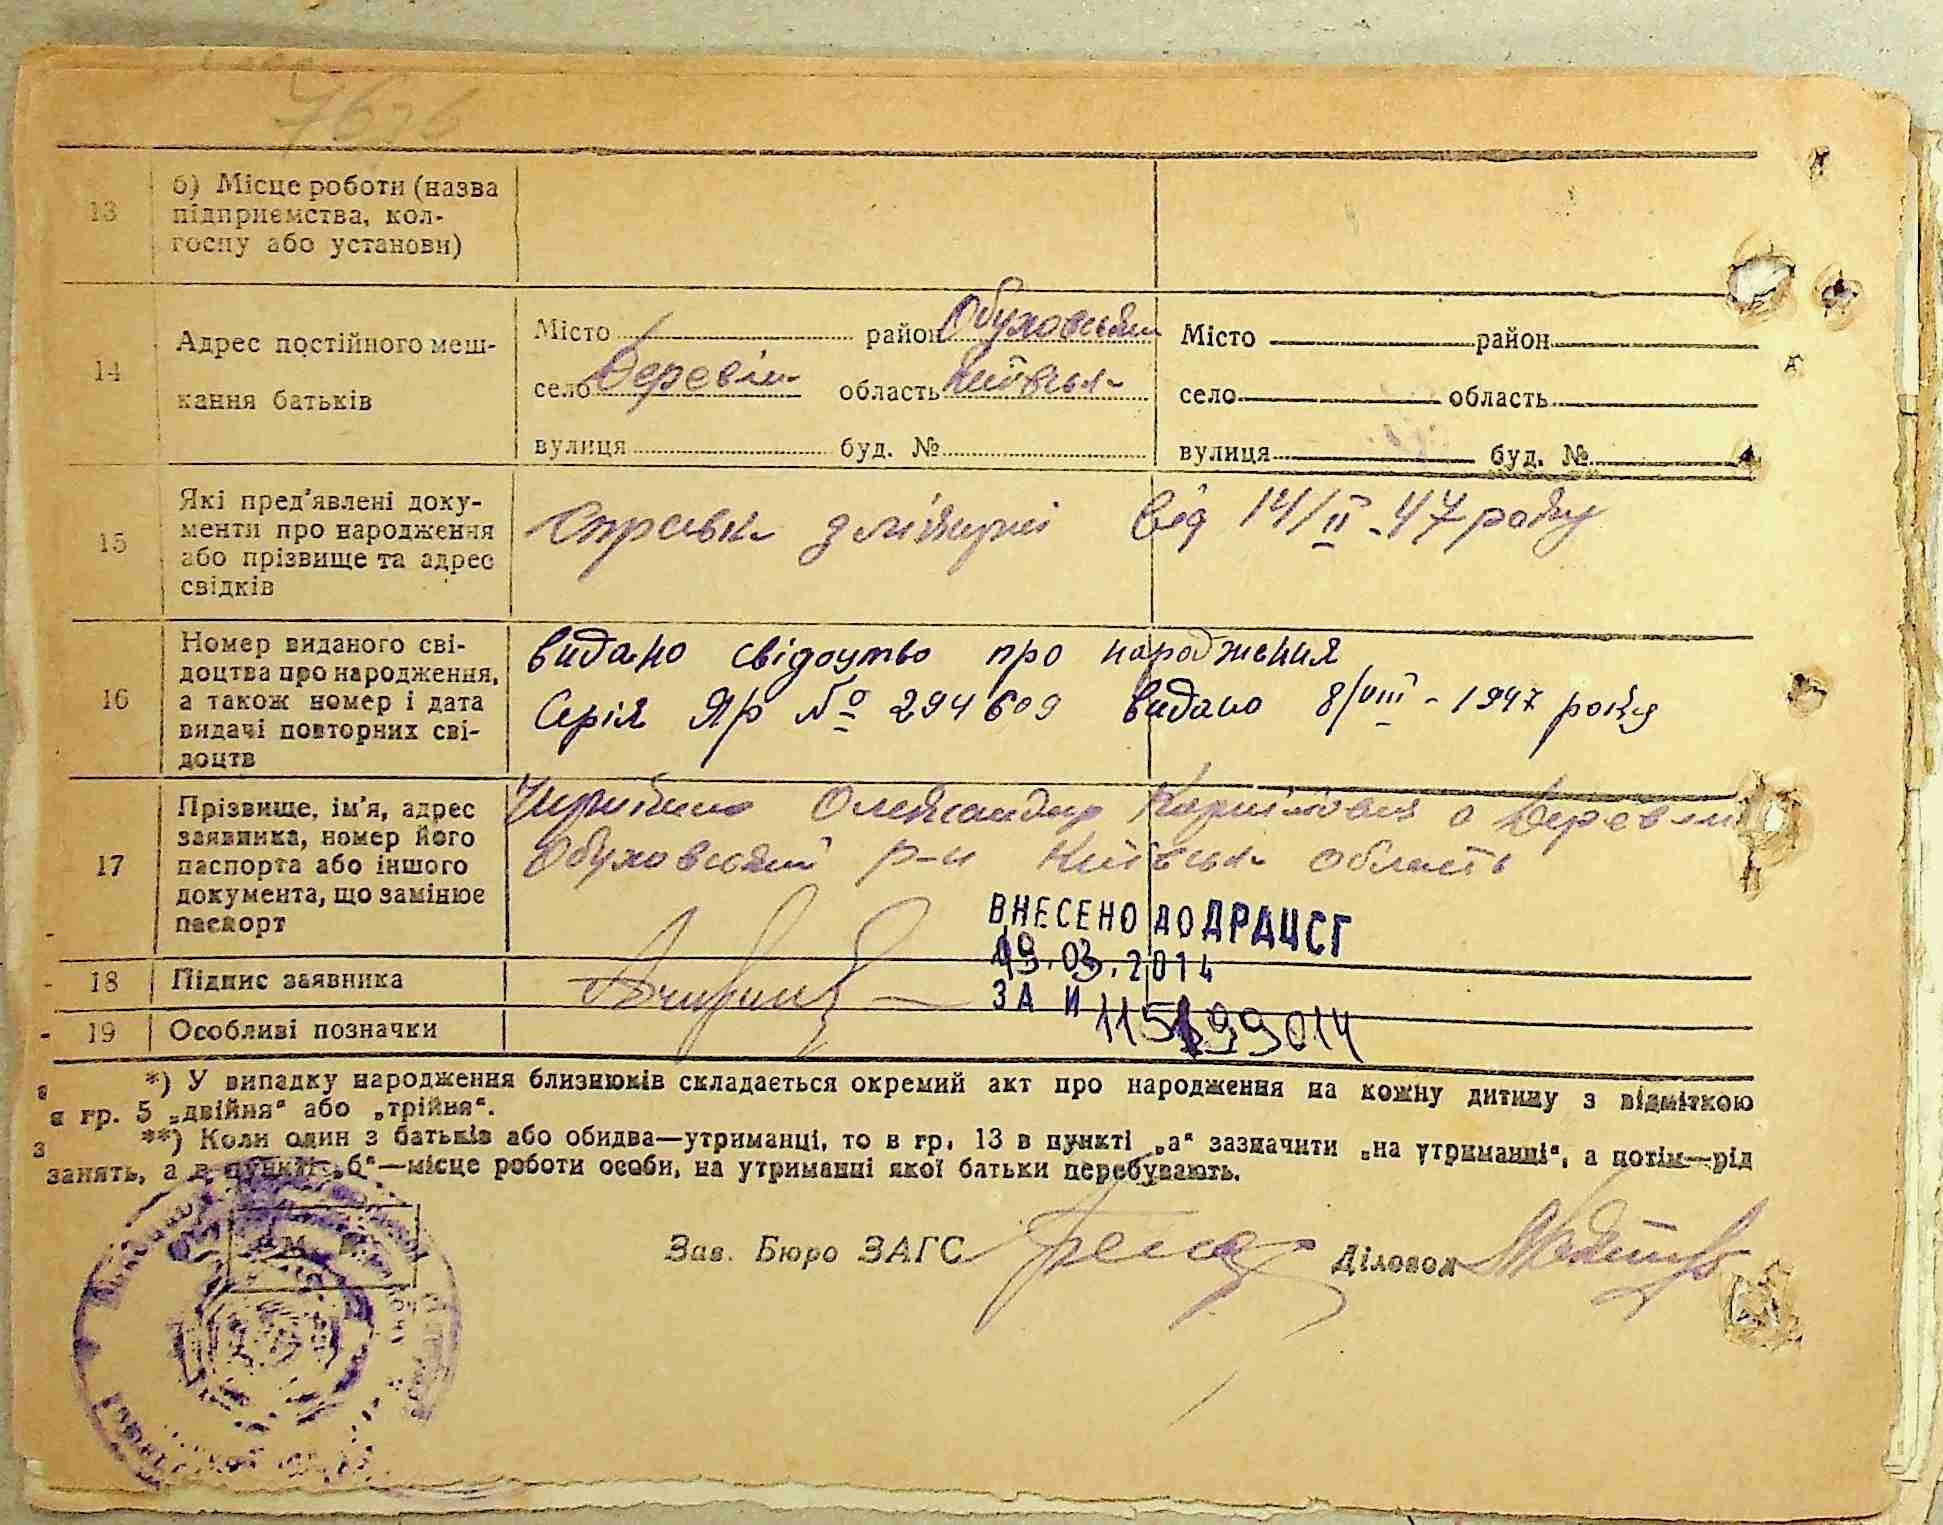 7676
13
б) Місце роботи (назва
підприємства, кол-
госпу або установи)
14
Адрес постійного меш-
кання батьків
Місто район Обуховський
село Деревян область Київськ
вулиця буд. №
Місто район
село область
вулиця буд. №
15
Які пред'явлені доку-
менти про народження
або прізвище та адрес
свідків
Справка з лікарні від 14/II-47 року
16
Номер виданого сві-
доцтва про народження,
а також номер і дата
видачі повторних сві-
доцтв
видано свідоцтво про народження
Серія ЯР № 294609 видано 8/VIII-1947 року
17
Прізвище, ім'я, адрес
заявника, номер його
паспорта або іншого
документа, що замінює
паспорт
Олександр с Деревян
Обуховський р-н Київськ область
ВНЕСЕНО ДО ДРАЦСГ
19.03.2014
ЗА И 115199014
18
Підпис заявника
19
Особливі позначки
*) У випадку народження близнюків складається окремий акт про народження на кожну дитину з відміткою
в гр. 5 „двійня“ або „трійня“.
**) Коли один з батьків або обидва—утриманці, то в гр. 13 в пункті „а“ зазначити „на утриманні“, а потім—рід
занять, а в пункті „б“—місце роботи особи, на утриманні якої батьки перебувають.
Зав. Бюро ЗАГС Діловод